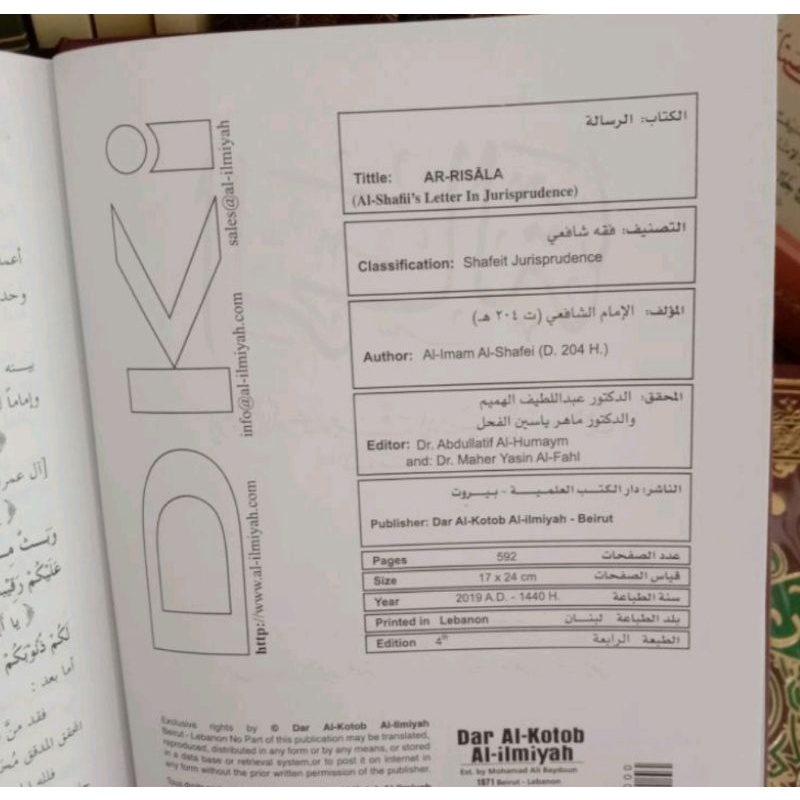 الكتاب: الرسالة
Tittle: AR-RISĀLA
(Al-Shafii's Letter In Jurisprudence)
التصنيف: فقه شافعي
Classification: Shafeit Jurisprudence
المؤلف: الإمام الشافعي (ت ٢٠٤ هـ)
Author: Al-Imam Al-Shafei (D. 204 H.)
المحقق: الدكتور عبداللطيف الهميم
والدكتور ماهر ياسين الفحل
Editor: Dr. Abdullatif Al-Humaym
and: Dr. Maher Yasin Al-Fahl
الناشر: دار الكتب العلميـــة - بيروت
Publisher: Dar Al-Kotob Al-ilmiyah - Beirut
Pages 592 عدد الصفحات
Size 17 x 24 cm قياس الصفحات
Year 2019 A.D. - 1440 H. سنة الطباعة
Printed in Lebanon بلد الطباعة لبنـــان
Edition 4th الطبعة الرابعة
DKi
sales@al-ilmiyah
info@al-ilmiyah.com
http://www.al-ilmiyah.com
Exclusive rights by © Dar Al-Kotob Al-Ilmiyah
Beirut - Lebanon No Part of this publication may be translated,
reproduced, distributed in any form or by any means, or stored
in a data base or retrieval system,or to post it on Internet in
any form without the prior written permission of the publisher.
Dar Al-Kotob
Al-ilmiyah
Est. by Mohamad Ali Baydoun
1971 Beirut - Lebanon
وحد
بيسته
وإماماً
[آل عمرا
وَبَثَّ مِـ
عَلَيْكُمْ رَقِيبًا
لَكُمْ ذُنُوبَكُمْ
أما بعد :
فقد منَّ
المحقق المدقق